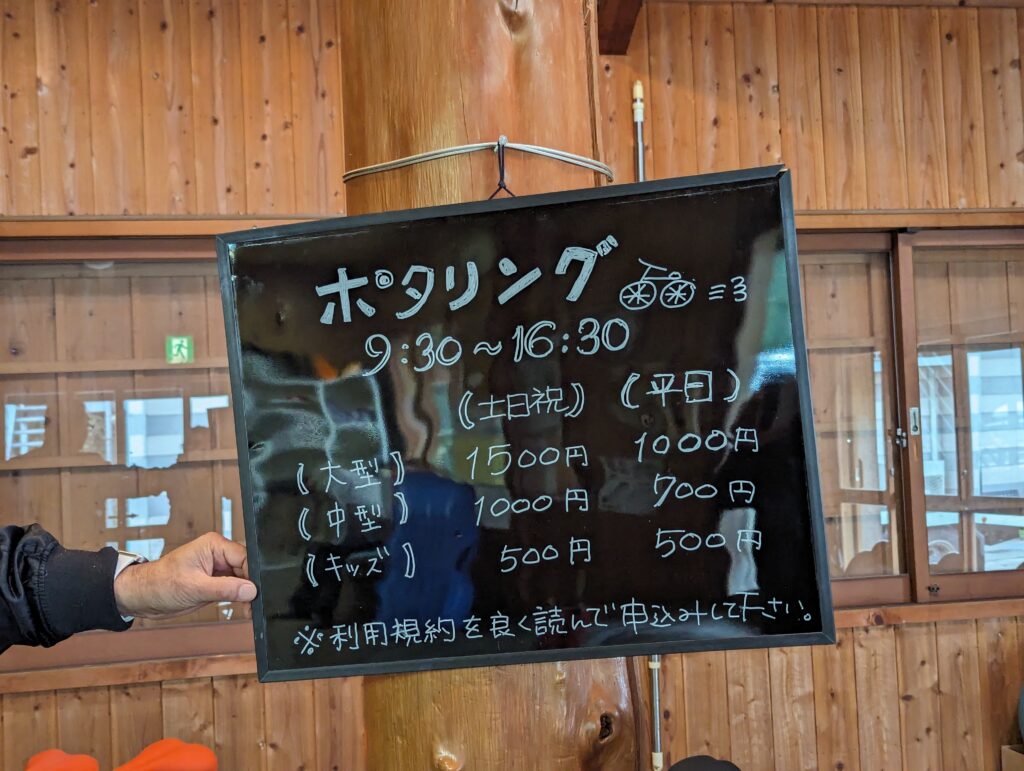 ポタリング
9:30～16:30
(土日祝) (平日)
《大型》 1500円 1000円
《中型》 1000円 700円
《キッズ》 500円 500円
※利用規約を良く読んで申込みして下さい。